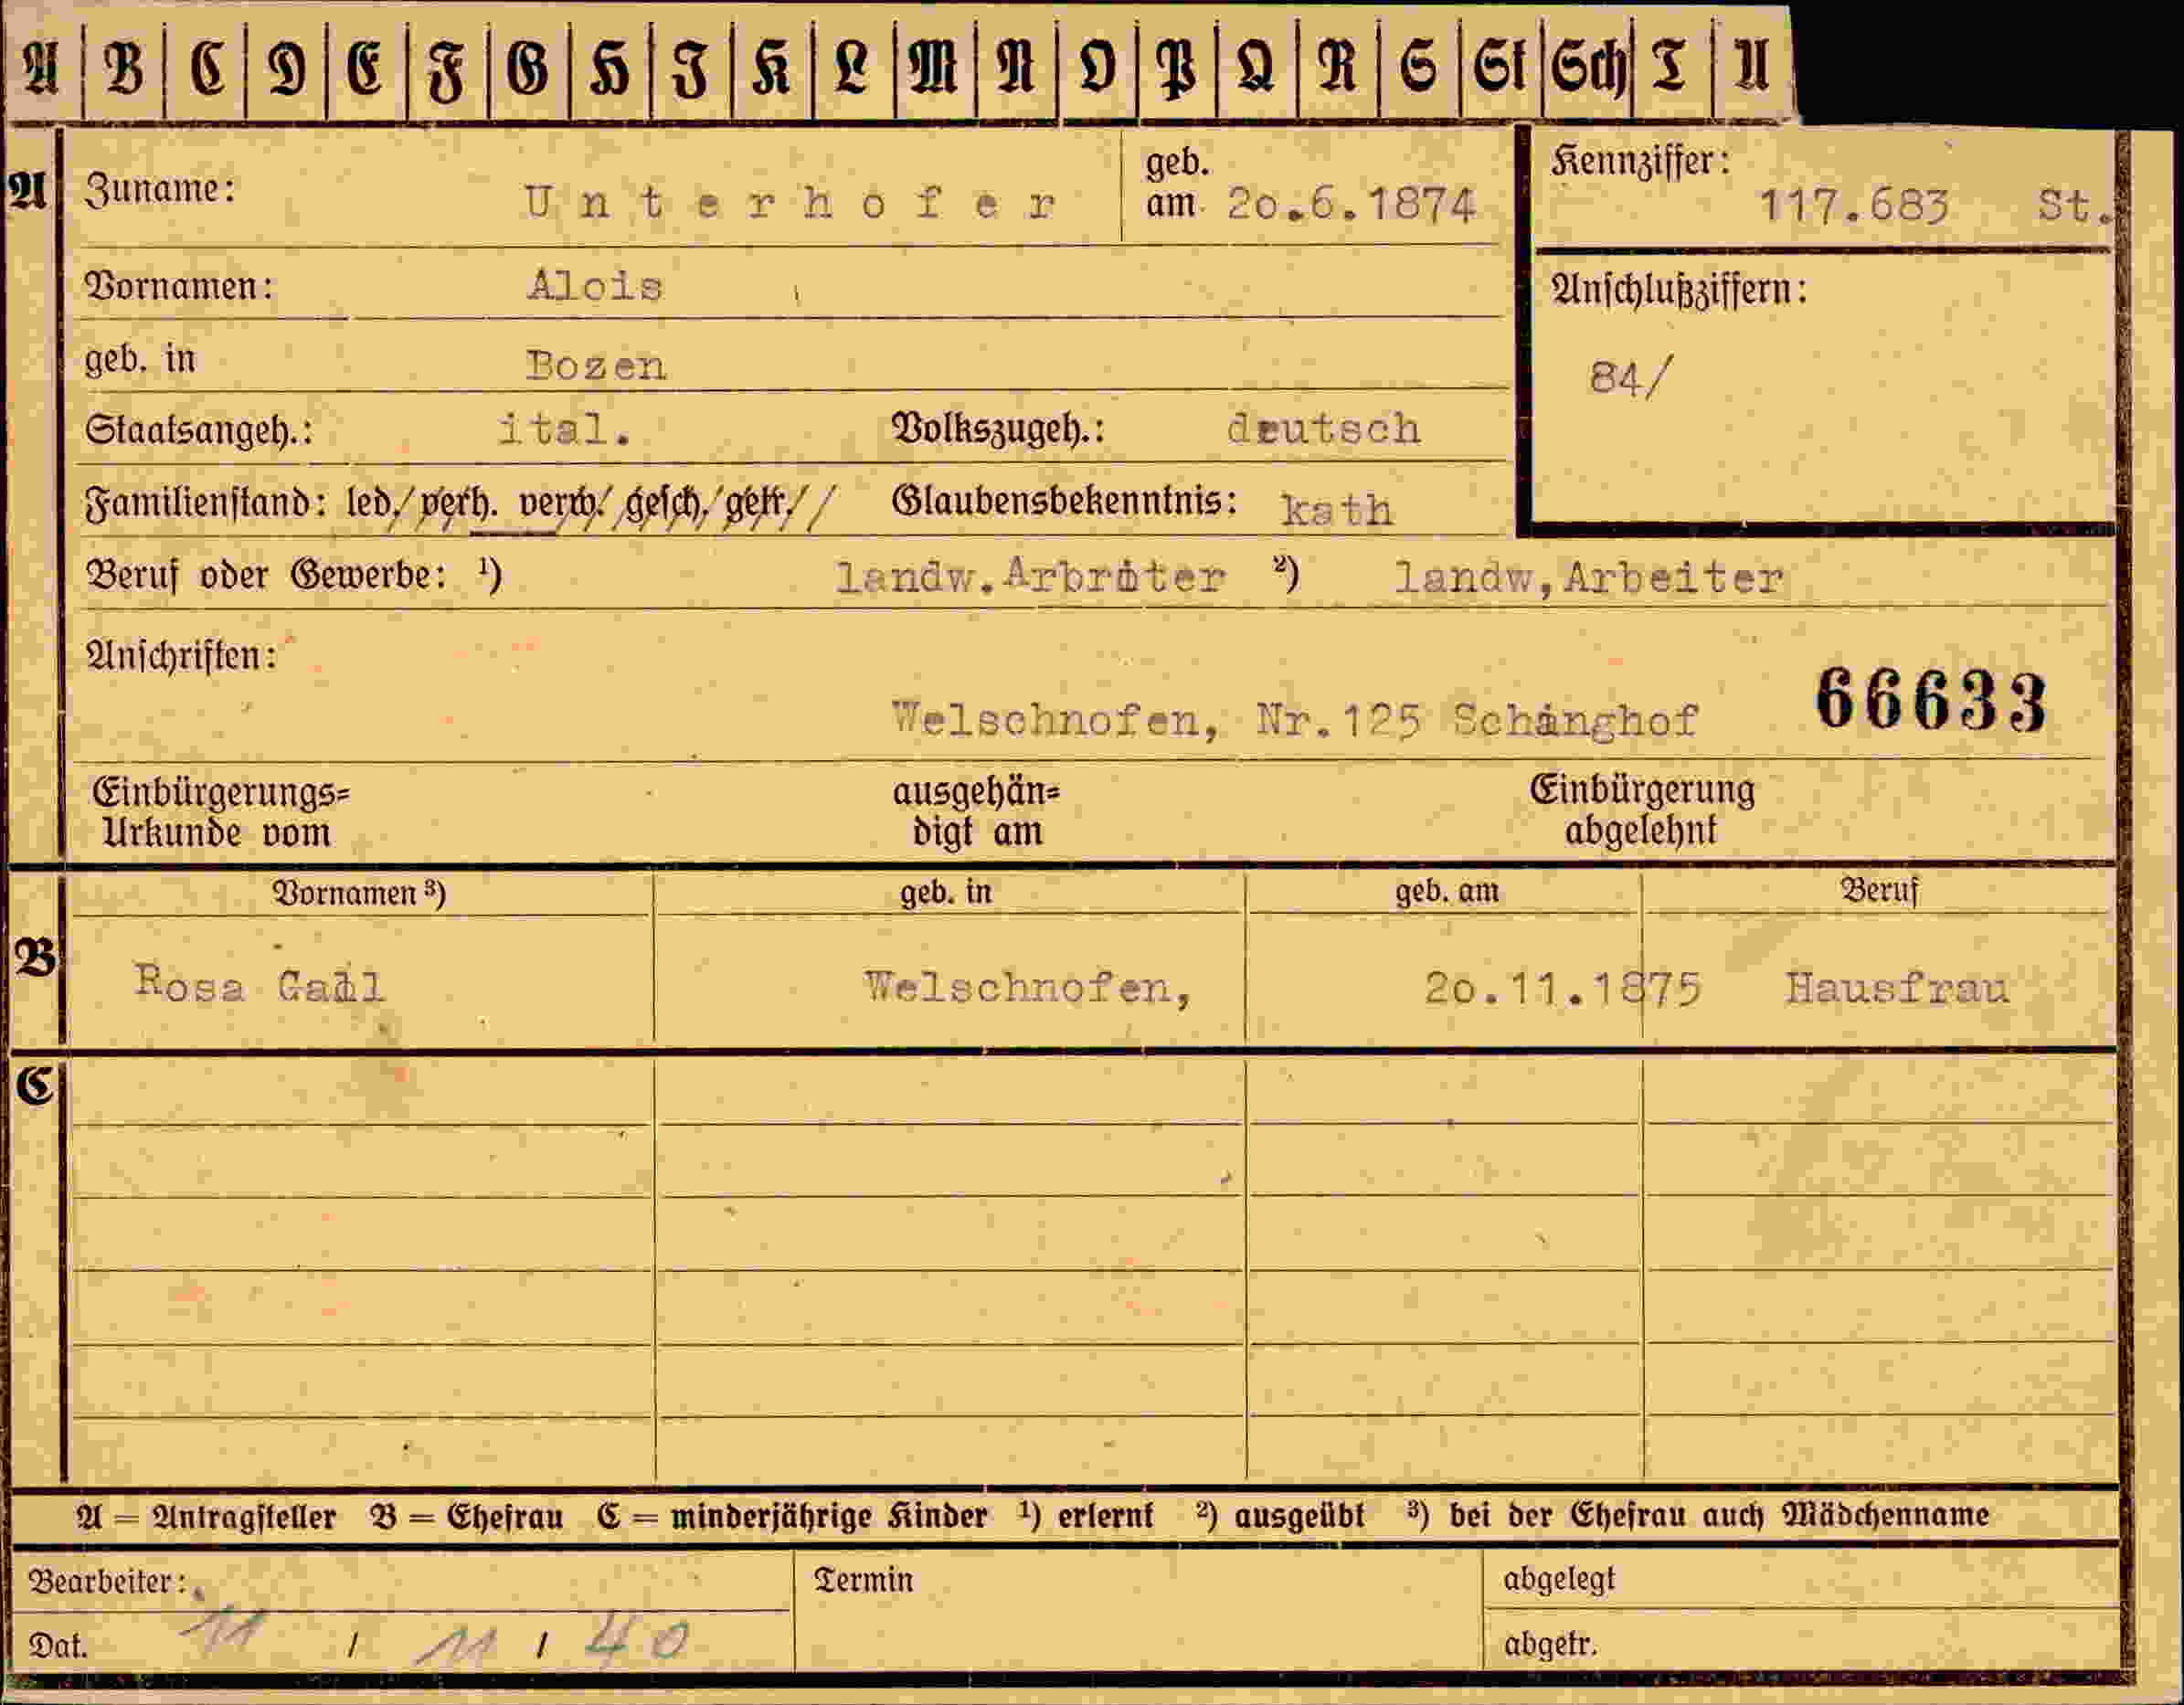 A B C D E F G H I K L M N O P Q R S St Sch T U
A Zuname: Unterhofer geb. am 20.6.1874 Kennziffer: 117.683 St.
Vornamen: Alois Anschlußziffern:
geb. in Bozen 84/
Staatsangeh.: ital. Volkszugeh.: deutsch
Familienstand: led./verh. verw./gesch./getr.// Glaubensbekenntnis: kath
Beruf oder Gewerbe: ¹) landw.Arbriter ²) landw,Arbeiter
Anschriften:
Welschnofen, Nr.125 Schänghof 66633
Einbürgerungs= ausgehän= Einbürgerung
Urkunde vom digt am abgelehnt
Vornamen ³) geb. in geb. am Beruf
B Rosa Welschnofen, 20.11.1875 Hausfrau
C
A = Antragsteller B = Ehefrau C = minderjährige Kinder ¹) erlernt ²) ausgeübt ³) bei der Ehefrau auch Mädchenname
Bearbeiter: Termin abgelegt
Dat. 11 / 11 / 40 abgetr.